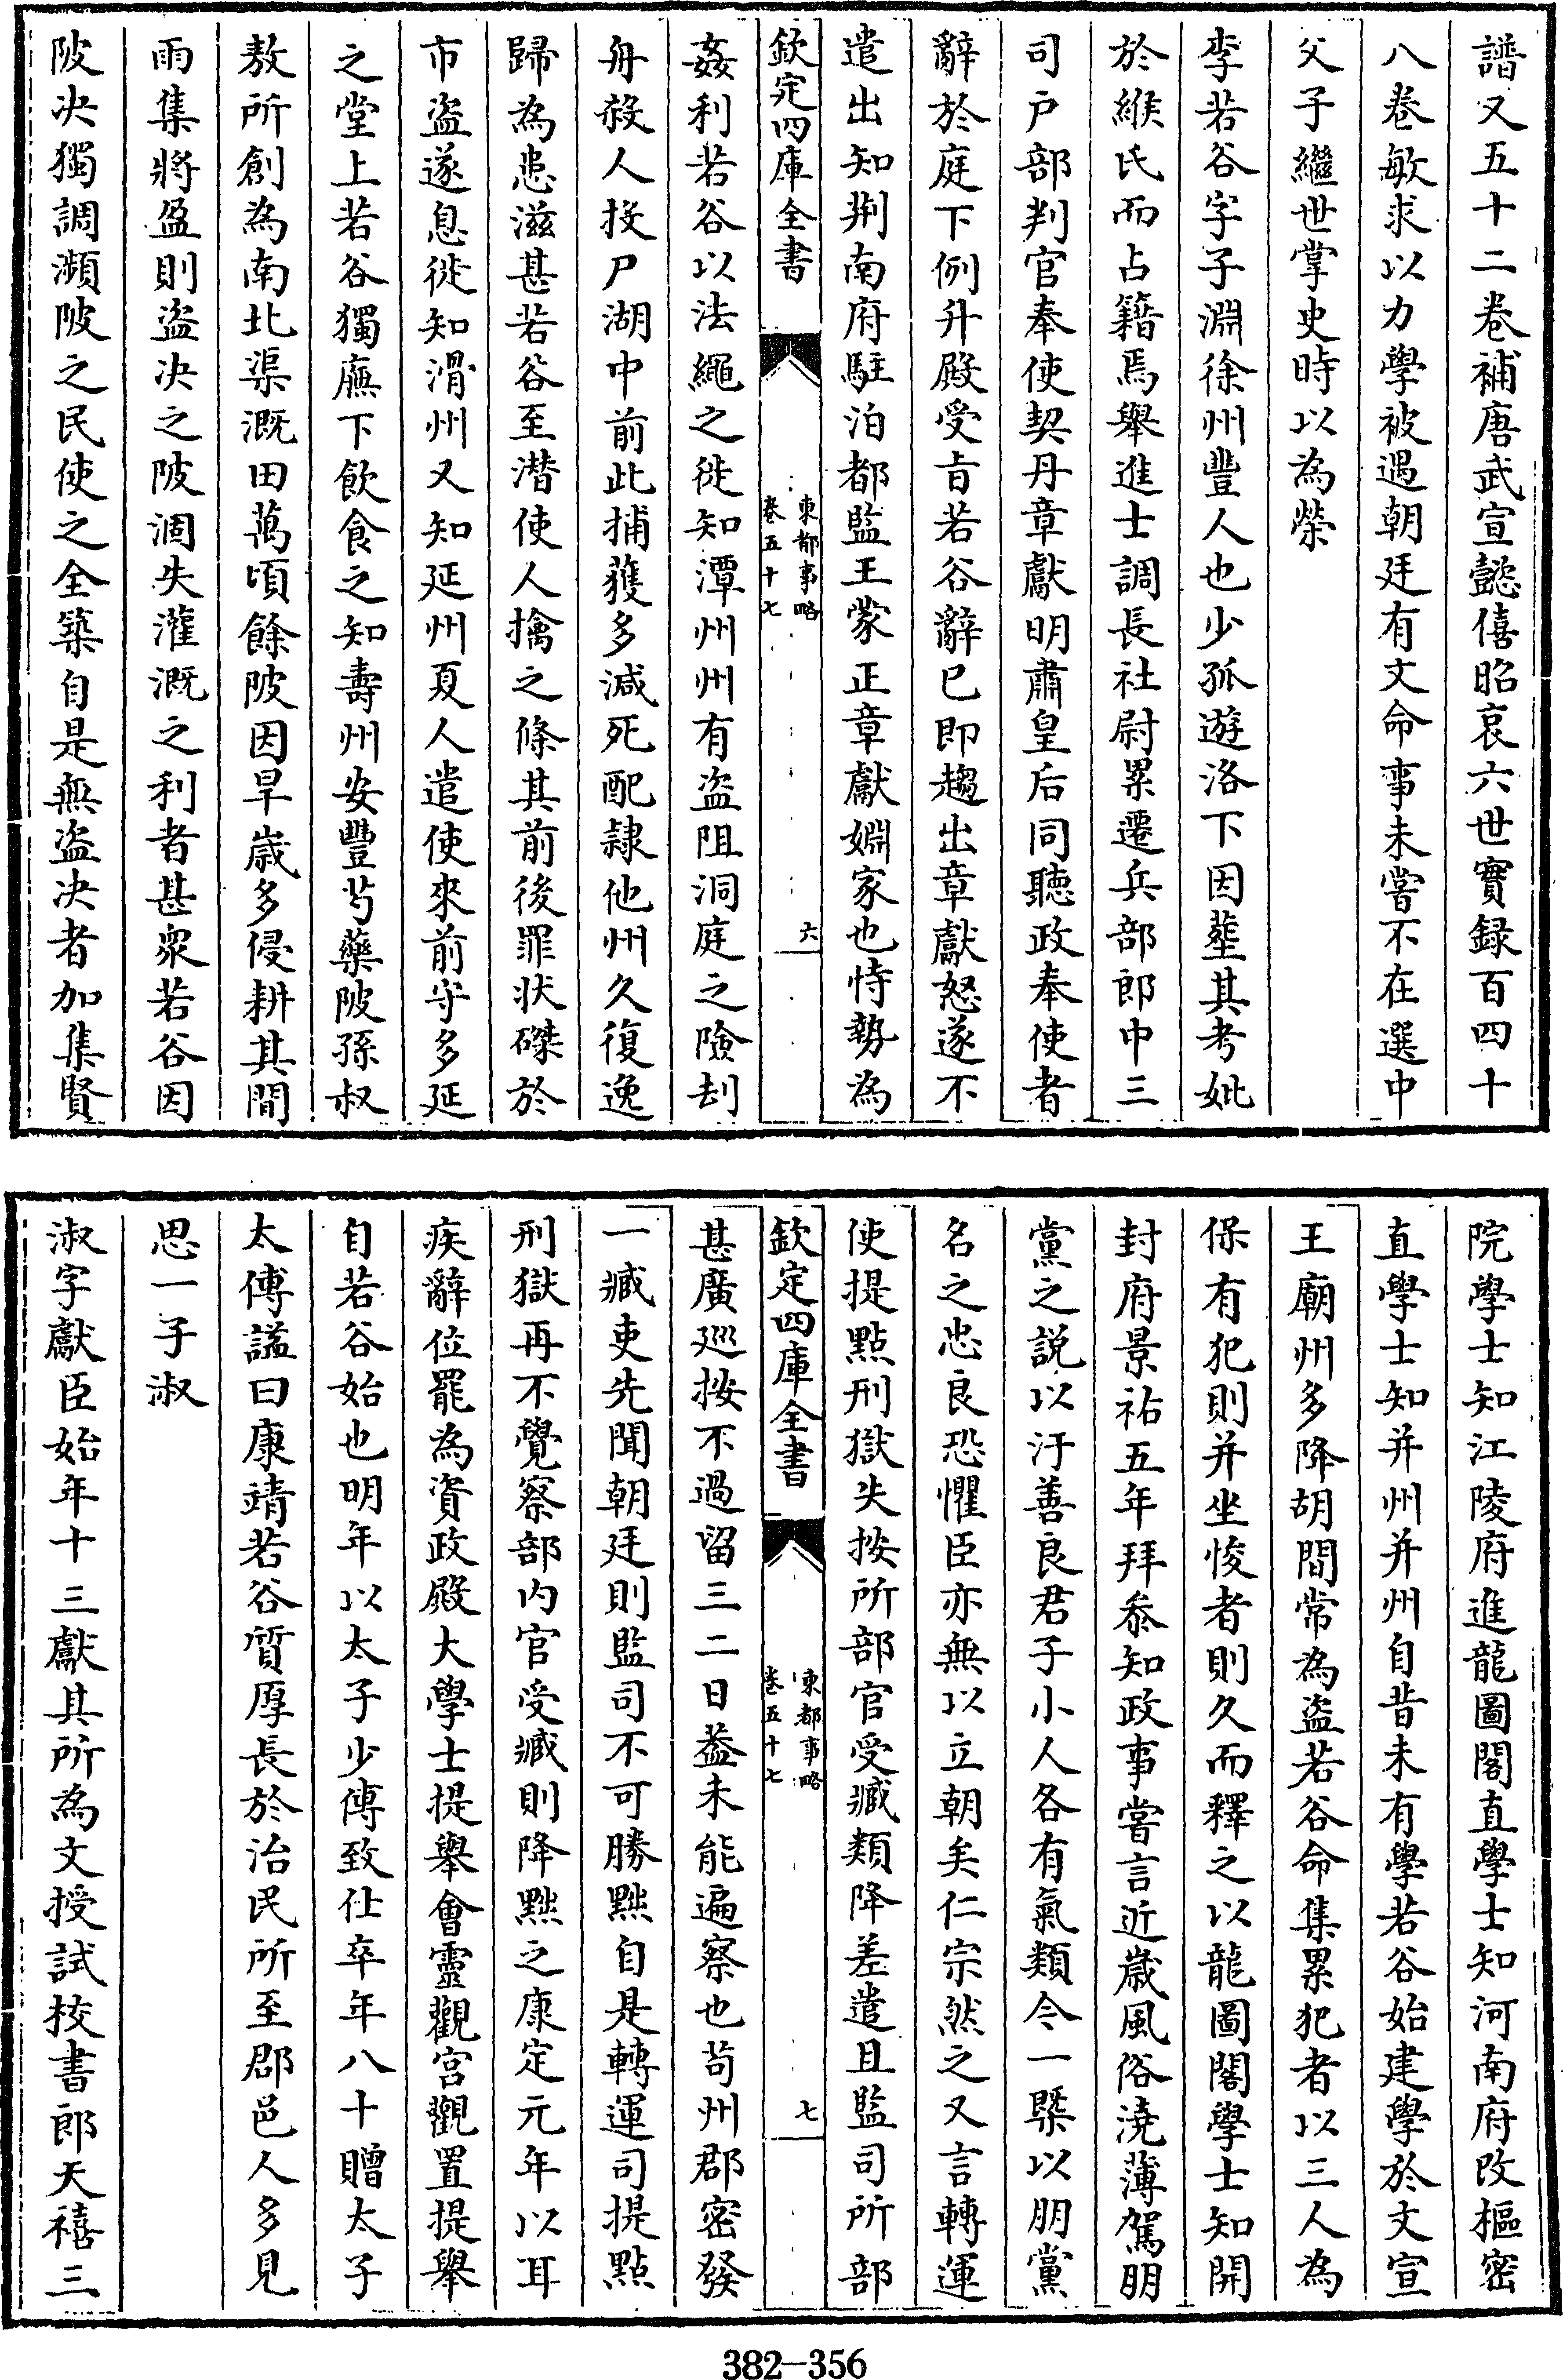 譜又五十二卷補唐武宣懿僖昭哀六世實録百四十
八卷敏求以力學被遇朝廷有文命事未嘗不在選中
父子繼世掌史時以為榮
李若谷字子淵徐州豐人也少孤遊洛下因塟其考妣
於緱氏而占籍焉舉進士調長社尉累遷兵部郎中三
司户部判官奉使契丹章獻明肅皇后同聽政奉使者
辭於庭下例升殿受㫖若谷辭已即趨出章獻怒遂不
遣出知荆南府駐泊都監王蒙正章獻婣家也恃勢為
欽定四庫全書
東都事略
卷五十七
六
姦利若谷以法繩之徙知潭州州有盜阻洞庭之險刦
舟殺人投尸湖中前此捕獲多減死配隸他州久復逸
歸為患滋甚若谷至潜使人擒之條其前後罪状磔於
市盜遂息徙知滑州又知延州夏人遣使來前守多延
之堂上若谷獨廡下飲食之知壽州安豐芍藥陂孫叔
敖所創為南北渠溉田萬頃餘陂因旱歲多侵耕其間
雨集將盈則盜决之陂涸失灌溉之利者甚衆若谷因
陂决獨調瀕陂之民使之全築自是無盜决者加集賢
院學士知江陵府進龍圖閣直學士知河南府改樞密
直學士知并州并州自昔未有學若谷始建學於文宣
王廟州多降胡間常為盜若谷命集累犯者以三人為
保有犯則并坐悛者則久而釋之以龍圖閣學士知開
封府景祐五年拜叅知政事嘗言近歲風俗澆薄駕朋
黨之説以汙善良君子小人各有氣類今一槩以朋黨
名之忠良恐懼臣亦無以立朝矣仁宗然之又言轉運
使提點刑獄失按所部官受贓類降差遣且監司所部
欽定四庫全書
東都事略
卷五十七
七
甚廣廵按不過留三二日葢未能遍察也茍州郡密發
一贓吏先聞朝廷則監司不可勝黜自是轉運司提點
刑獄再不覺察部内官受贓則降黜之康定元年以耳
疾辭位罷為資政殿大學士提舉會靈觀宫觀置提舉
自若谷始也明年以太子少傅致仕卒年八十贈太子
太傅諡曰康靖若谷質厚長於治民所至郡邑人多見
思一子淑
淑字獻臣始年十三獻其所為文授試挍書郎天禧三
382-356